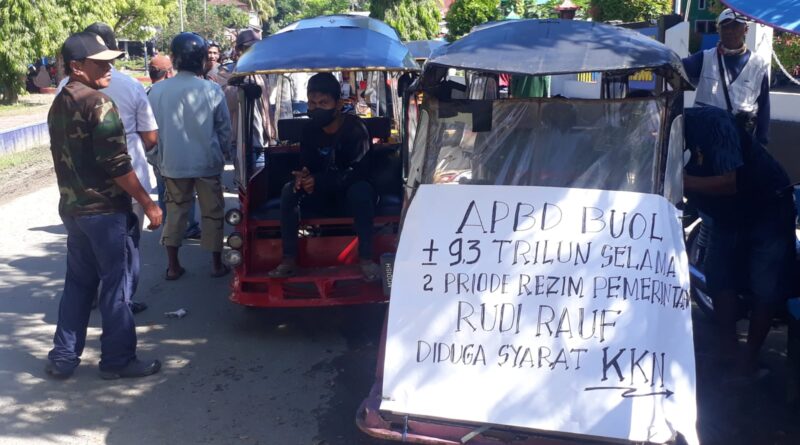 APBD BUOL
± 9,3 TRILUN SELAMA
2 PRIODE REZIM PEMERINTAH
RUDI RAUF
DIDUGA SYARAT KKN